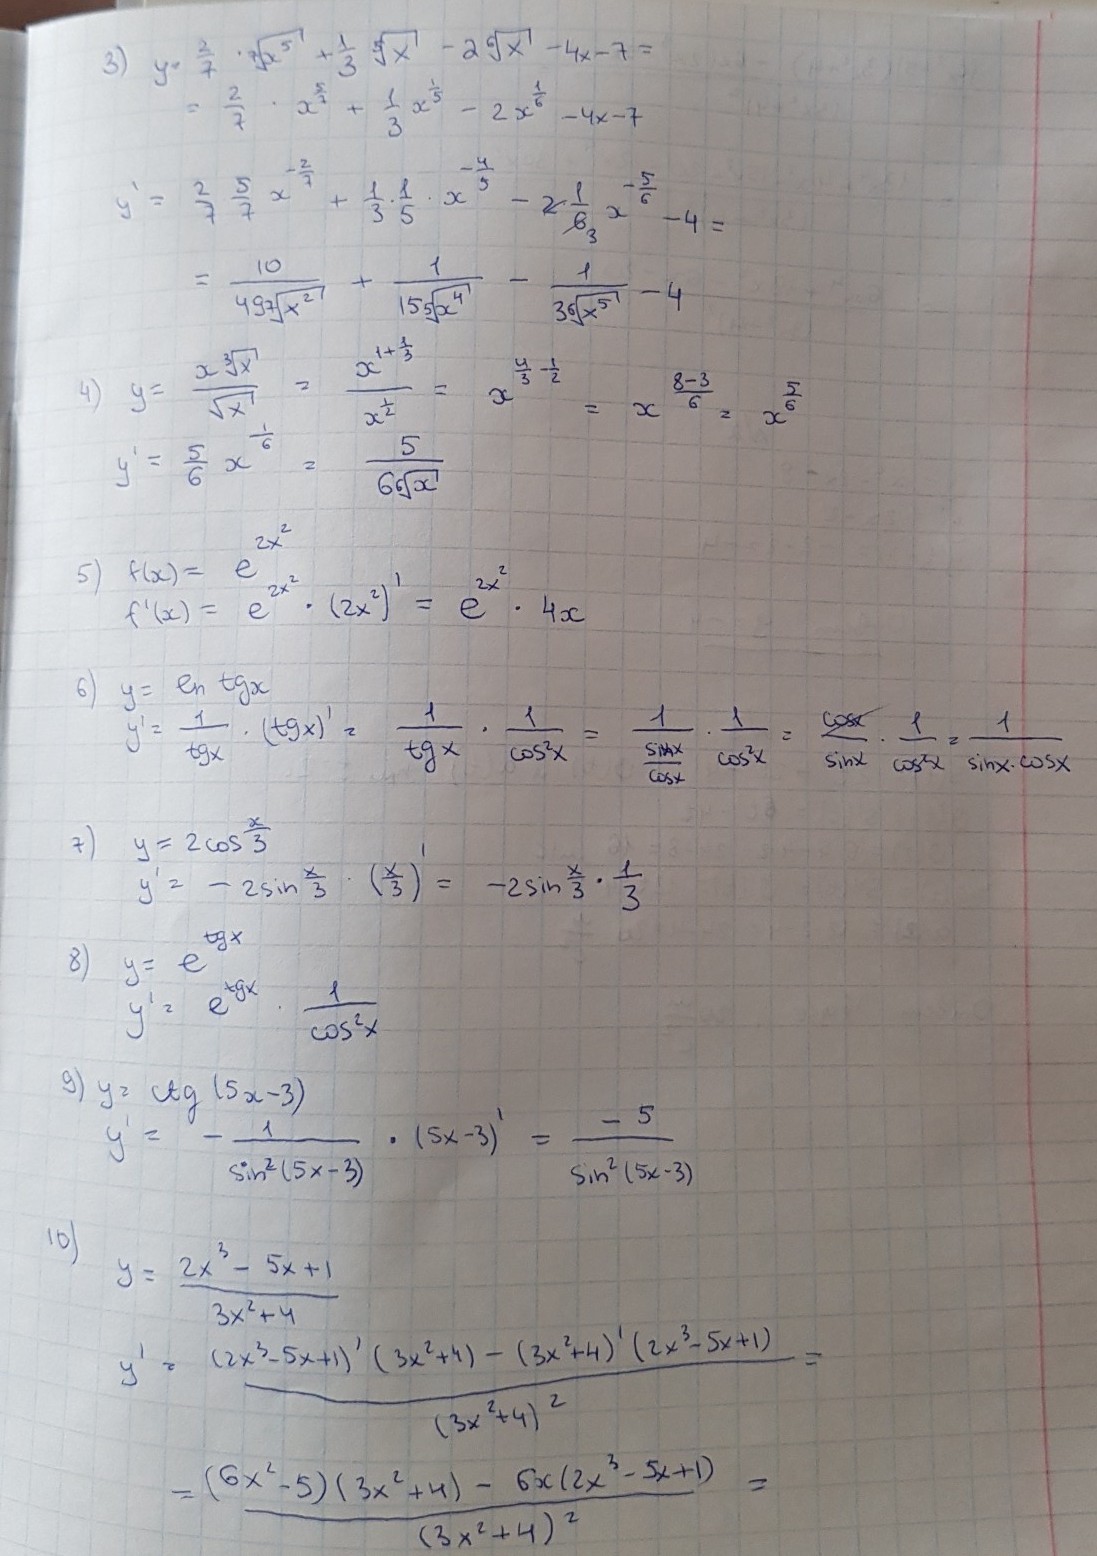 3) y = 2/7 · ⁷√x⁵ + 1/3 ⁵√x − 2 ⁶√x − 4x − 7 =
= 2/7 · x^(5/7) + 1/3 x^(1/5) − 2x^(1/6) − 4x − 7
y' = 2/7 5/7 x^(−2/7) + 1/3 · 1/5 · x^(−4/5) − 2 1/6 3 x^(−5/6) − 4 =
= 10/(49 ⁷√x²) + 1/(15 ⁵√x⁴) − 1/(3 ⁶√x⁵) − 4
4) y = (x ³√x)/√x = x^(1+1/3)/x^(1/2) = x^(4/3 − 1/2) = x^((8−3)/6) = x^(5/6)
y' = 5/6 x^(−1/6) = 5/(6 ⁶√x)
5) f(x) = e^(2x²)
f'(x) = e^(2x²) · (2x²)' = e^(2x²) · 4x
6) y = ln tgx
y' = 1/tgx · (tgx)' = 1/tgx · 1/cos²x = 1/(sinx/cosx) · 1/cos²x = cosx/sinx · 1/cos²x = 1/(sinx·cosx)
7) y = 2cos x/3
y' = −2sin x/3 · (x/3)' = −2sin x/3 · 1/3
8) y = e^(tgx)
y' = e^(tgx) · 1/cos²x
9) y = ctg (5x−3)
y' = − 1/sin²(5x−3) · (5x−3)' = −5/sin²(5x−3)
10)
y = (2x³ − 5x + 1)/(3x² + 4)
y' = ((2x³−5x+1)' (3x²+4) − (3x²+4)' (2x³−5x+1))/(3x²+4)² =
= ((6x²−5)(3x²+4) − 6x(2x³−5x+1))/(3x²+4)² =